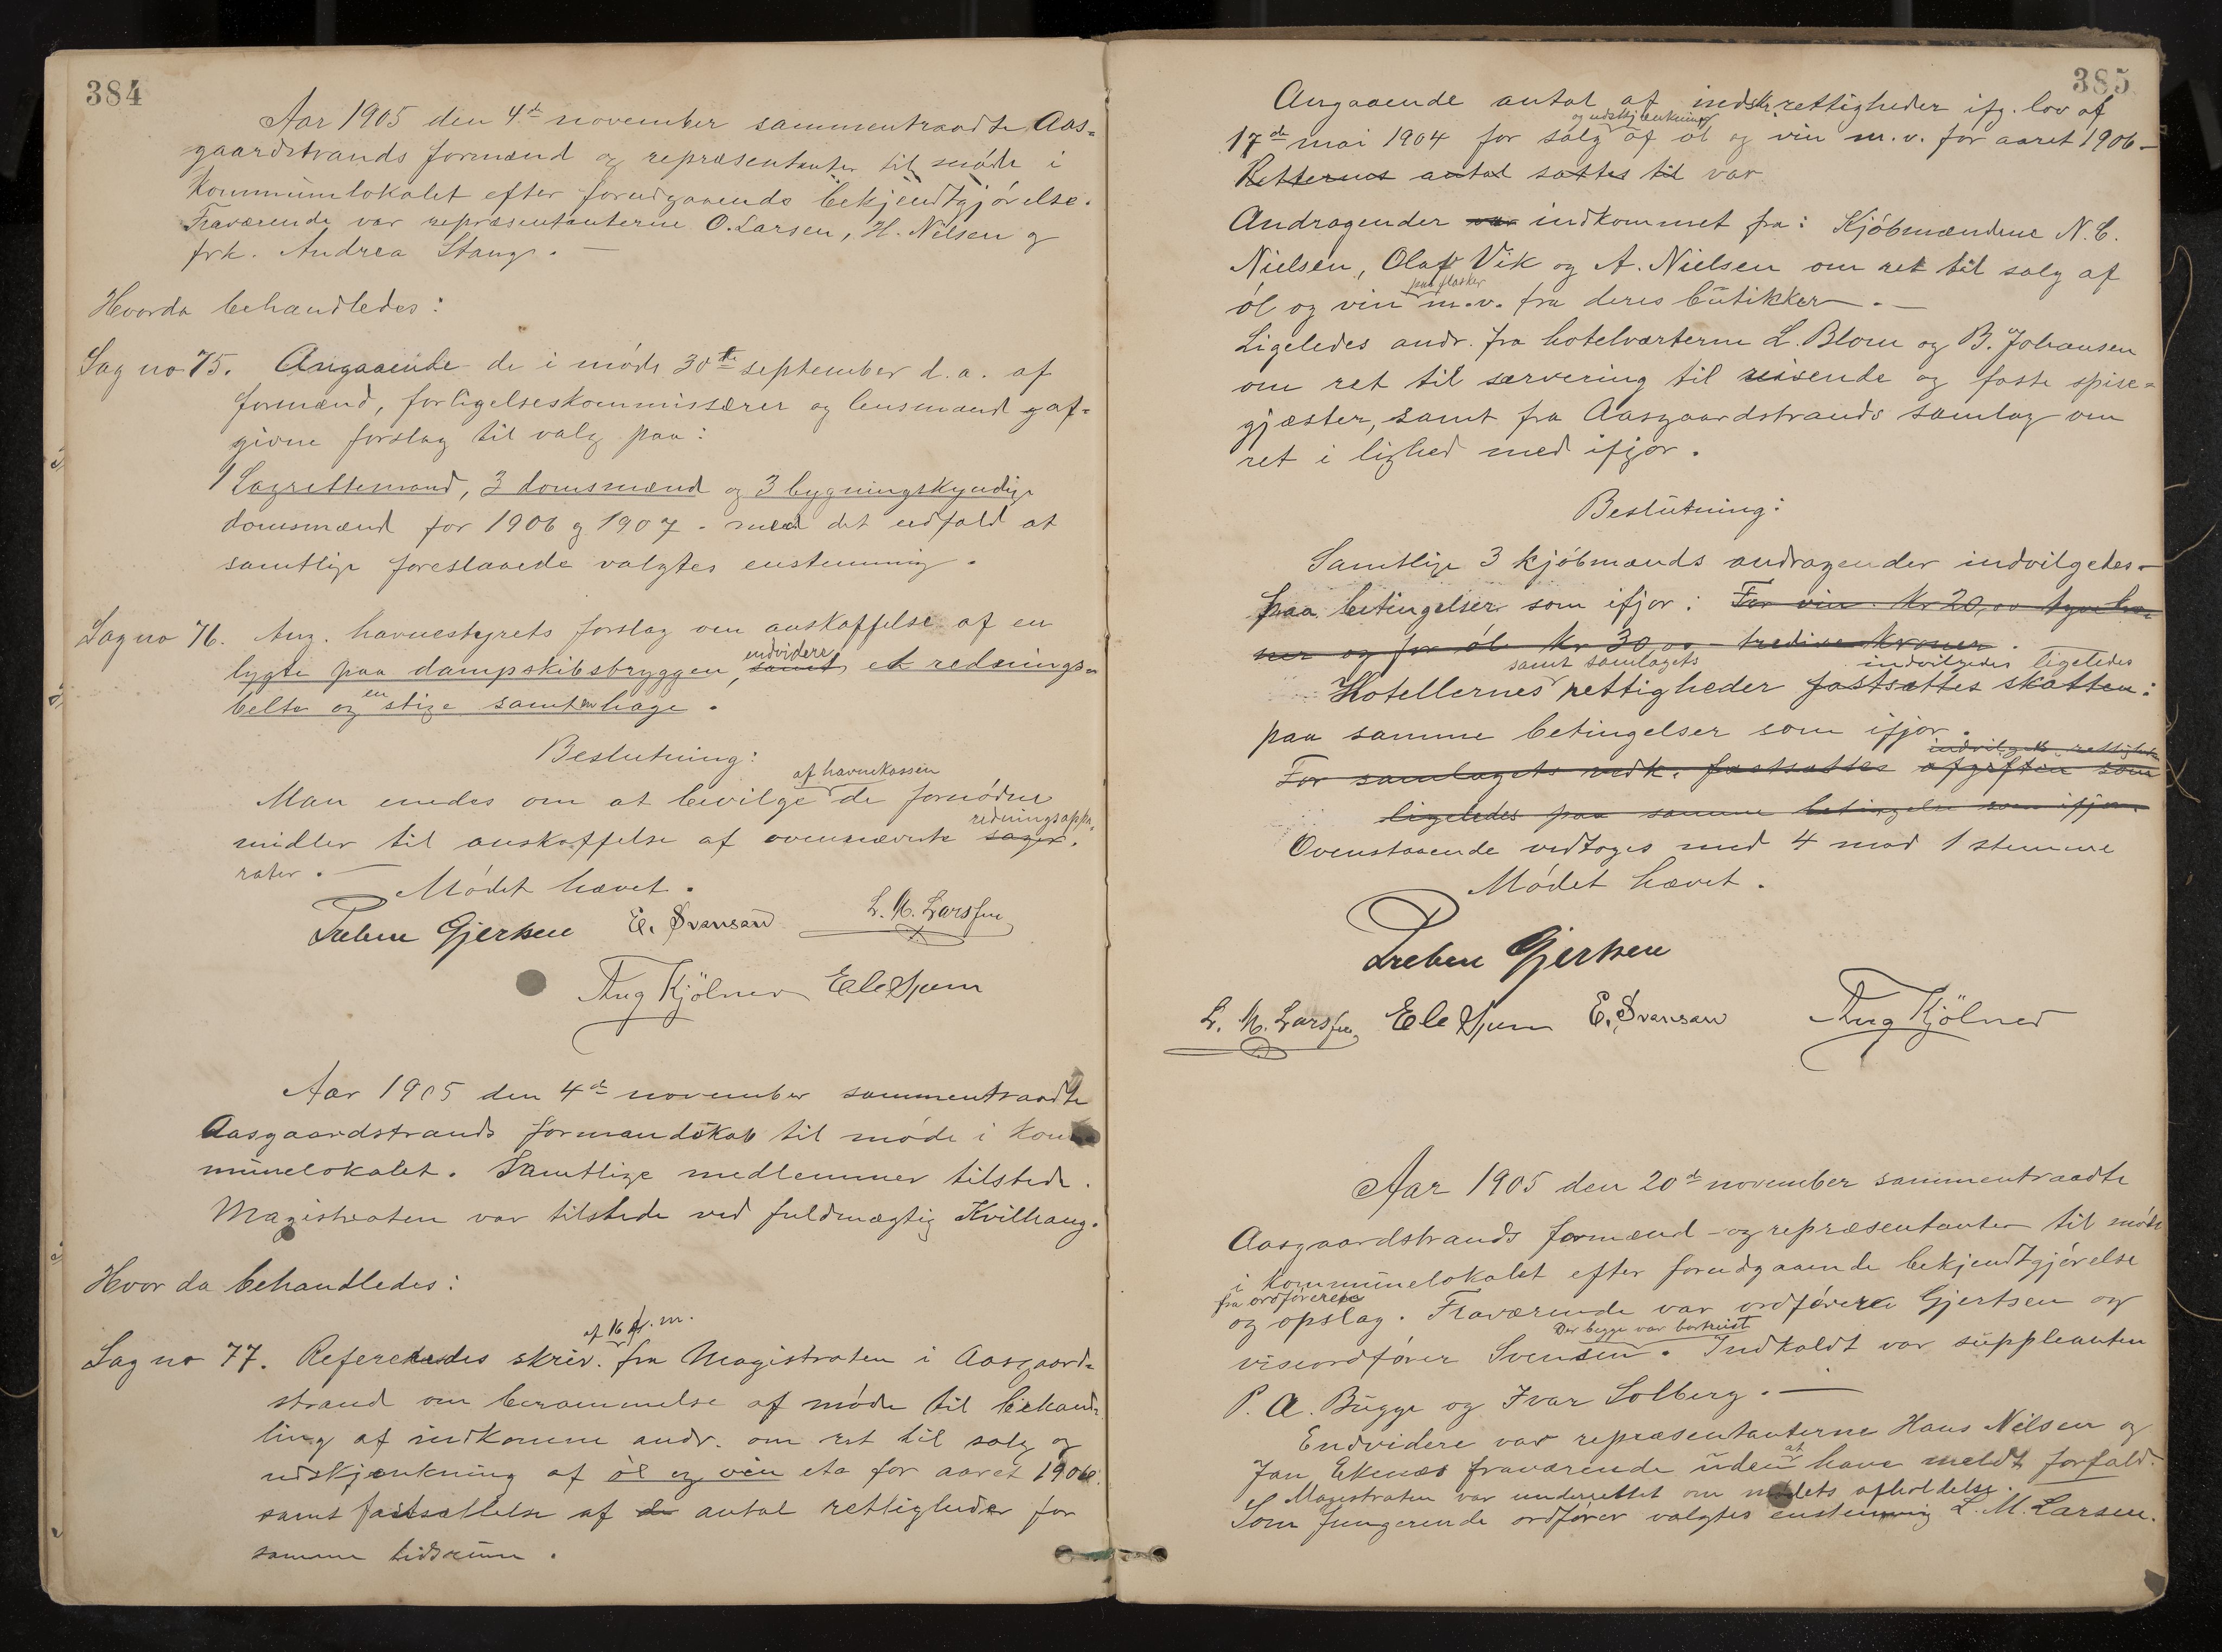 384
Aar 1905 den 4de november sammentraadte Aas=
gaardstrands formænd og repræsentanter til møde i
Kommunlokalet efter forudgaaende bekjendtgjørelse.
Fraværende var repræsentanterne O. Larsen, H. Nilsen og
frk. Andrea Stang. —
Hvorda behandledes:
Sag no 75. Angaaende de i møde 30te september d.a. af
formænd, forligelseskommissærer og lensmand af=
givne forslag til valg paa:
1 Lagrettemand, 3 domsmænd og 3 bygningskyndige
domsmænd for 1906 og 1907 - med det udfald at
samtlige foreslaaede valgtes enstemmig.
Sag no 76. Ang. havnestyrets forslag om anskaffelse af en
endvidere
lygte paa dampskibsbryggen, samt et rednings=
belte og en stige samt en hage.
Beslutning:
af havnekassen
Man enedes om at bevilge de fornødne
redningsappa=
midler til anskaffelse af ovennævnte sager.
rater. —
Mødet hævet.
Preben Gjertsen E. Svensen L. M. Larssen
Aug Kjölner
Aar 1905 den 4de november sammentraadte
Aasgaardstrands formandskab til møde i kom=
munelokalet. Samtlige medlemmer tilstede.
Magistraten var tilstede ved fuldmægtig Kvilhaug.
Hvor da behandledes:
af 16 f. m.
Sag no 77. Refereredes skriv. fra Magistraten i Aasgaard=
strand om berammelse af møde til behand=
ling af indkomne andr. om ret til salg og
udskjænkning af øl og vin etc for aaret 1906
samt fastsættelse af de antal rettigheder for
samme tidsrum.
385
Angaaende antal af indskr. rettigheder ifg. lov af
og udskjænkning
17de mai 1904 for salg af øl og vin m.v. for aaret 1906 —
Retternes antal sattes til var
Andragender var indkommet fra: Kjøbmændene N. C.
Nielsen, Olaf Vik og A. Nielsen om ret til salg af
paa flasker
øl og vin m.v. fra deres butikker. —
Ligeledes andr. fra hotelværterne L. Blom og B. Johansen
om ret til servering til reisende og faste spise=
gjæster, samt fra Aasgaardstrands samlag om
ret i lighed med ifjor.
Beslutning:
Samtlige 3 kjøbmænds andragender indvilgedes —
paa betingelser som ifjor: For vin Kr 20,00 tyve kro
ner og for øl Kr 30,00 - tredive kroner.
samt samlagets indvilgedes ligeledes
Hotellernes rettigheder fastsættes skatten:
paa samme betingelser som ifjor.
indvilgedes rettighed
For samlagets vedk. fastsattes afgiften som
ligeledes paa samme betingelse som ifjor.
Ovenstaaende vedtoges med 4 mod 1 stemme
Mødet hævet.
Preben Gjertsen
L. M. Larssen E. Svensen Aug Kjölner
Aar 1905 den 20de november sammentraadte
Aasgaardstrands formænd - og repræsentanter til møde
i kommunelokalet efter forudgaaende bekjendtgjørelse
fra ordføreren
og opslag. Fraværende var ordfører Gjertsen og
Der begge var bortreist
viseordfører Svensen. Indkaldt var suppleanten
P. A. Bugge og Ivar Solberg. —
Endvidere var repræsentanterne Hans Nilsen og
Jan Ekenæs fraværende uden at have meldt forfald.
Magistraten var underrettet om mødets afholdelse.
Som fungerende ordfører valgtes enstemmig L. M. Larsen.